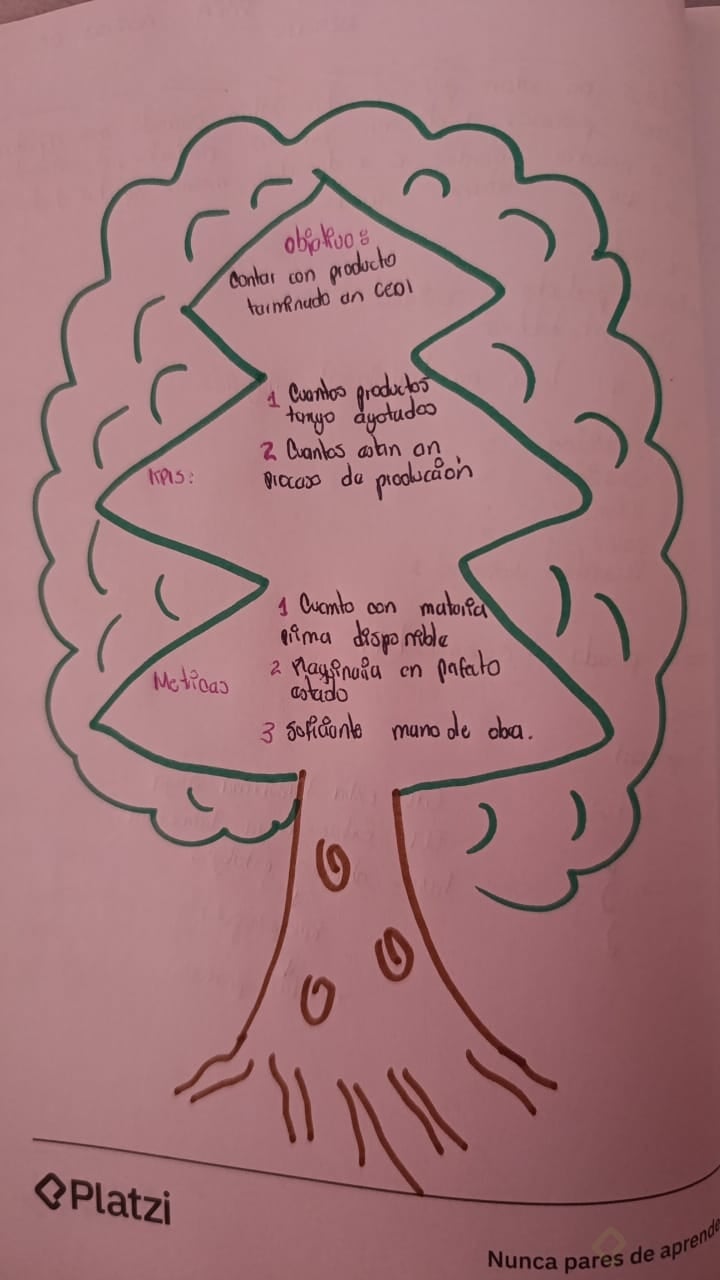 objetivo:
Contar con producto
terminado en CEDI
1 Cuantos productos
tengo agotados
2 Cuantos estan en
KPIS:
proceso de producción
1 Cuento con materia
prima disponible
Metricas
2 Maquinaria en perfecto
estado
3 Suficiente mano de obra.
Platzi
Nunca pares de aprende